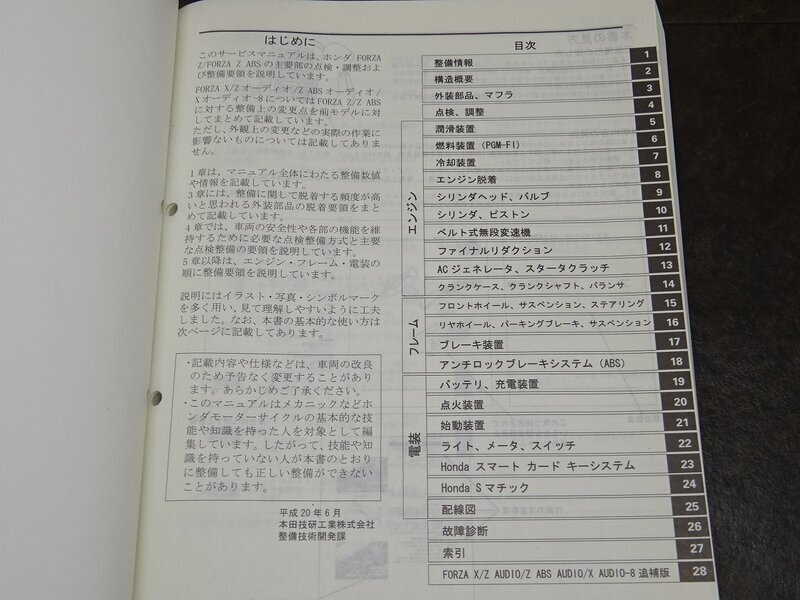 はじめに
このサービスマニュアルは、ホンダ FORZA
Z/FORZA Z ABSの主要部の点検・調整およ
び整備要領を説明しています。
FORZA X/Zオーディオ/Z ABSオーディオ/
Xオーディオ-8についてはFORZA Z/Z ABS
に対する整備上の変更点を前モデルに対
してまとめて記載しています。
ただし、外観上の変更などの実際の作業に
影響ないものについては記載してありま
せん。
1章は、マニュアル全体にわたる整備数値
や情報を記載しています。
3章には、整備に関して脱着する頻度が高
いと思われる外装部品の脱着要領をまと
めて記載しています。
4章では、車両の安全性や各部の機能を維
持するために必要な点検整備方式と主要
な点検整備の要領を説明しています。
5章以降は、エンジン・フレーム・電装の
順に整備要領を説明しています。
説明にはイラスト・写真・シンボルマーク
を多く用い、見て理解しやすいように工夫
しました。なお、本書の基本的な使い方は
次ページに記載してあります。
・記載内容や仕様などは、車両の改良
のため予告なく変更することがあり
ます。あらかじめご了承ください。
・このマニュアルはメカニックなどホ
ンダモーターサイクルの基本的な技
能や知識を持った人を対象として編
集しています。したがって、技能や知
識を持っていない人が本書のとおり
に整備しても正しい整備ができない
ことがあります。
平成20年6月
本田技研工業株式会社
整備技術開発課
目次
整備情報 1
構造概要 2
外装部品、マフラ 3
点検、調整 4
エンジン
潤滑装置 5
燃料装置 (PGM-FI) 6
冷却装置 7
エンジン脱着 8
シリンダヘッド、バルブ 9
シリンダ、ピストン 10
ベルト式無段変速機 11
ファイナルリダクション 12
ACジェネレータ、スタータクラッチ 13
クランクケース、クランクシャフト、バランサ 14
フレーム
フロントホイール、サスペンション、ステアリング 15
リヤホイール、パーキングブレーキ、サスペンション 16
ブレーキ装置 17
アンチロックブレーキシステム (ABS) 18
電装
バッテリ、充電装置 19
点火装置 20
始動装置 21
ライト、メータ、スイッチ 22
Honda スマート カード キーシステム 23
Honda S マチック 24
配線図 25
故障診断 26
索引 27
FORZA X/Z AUDIO/Z ABS AUDIO/X AUDIO-8 追補版 28